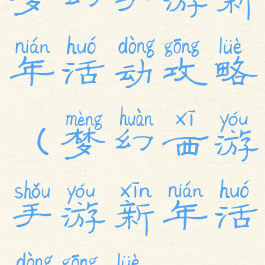 梦幻手游新
nián huó dòng gōng lüè
年活动攻略
mèng huàn xī yóu
（梦幻西游
shǒu yóu xīn nián huó
手游新年活
dòng gōng lüè